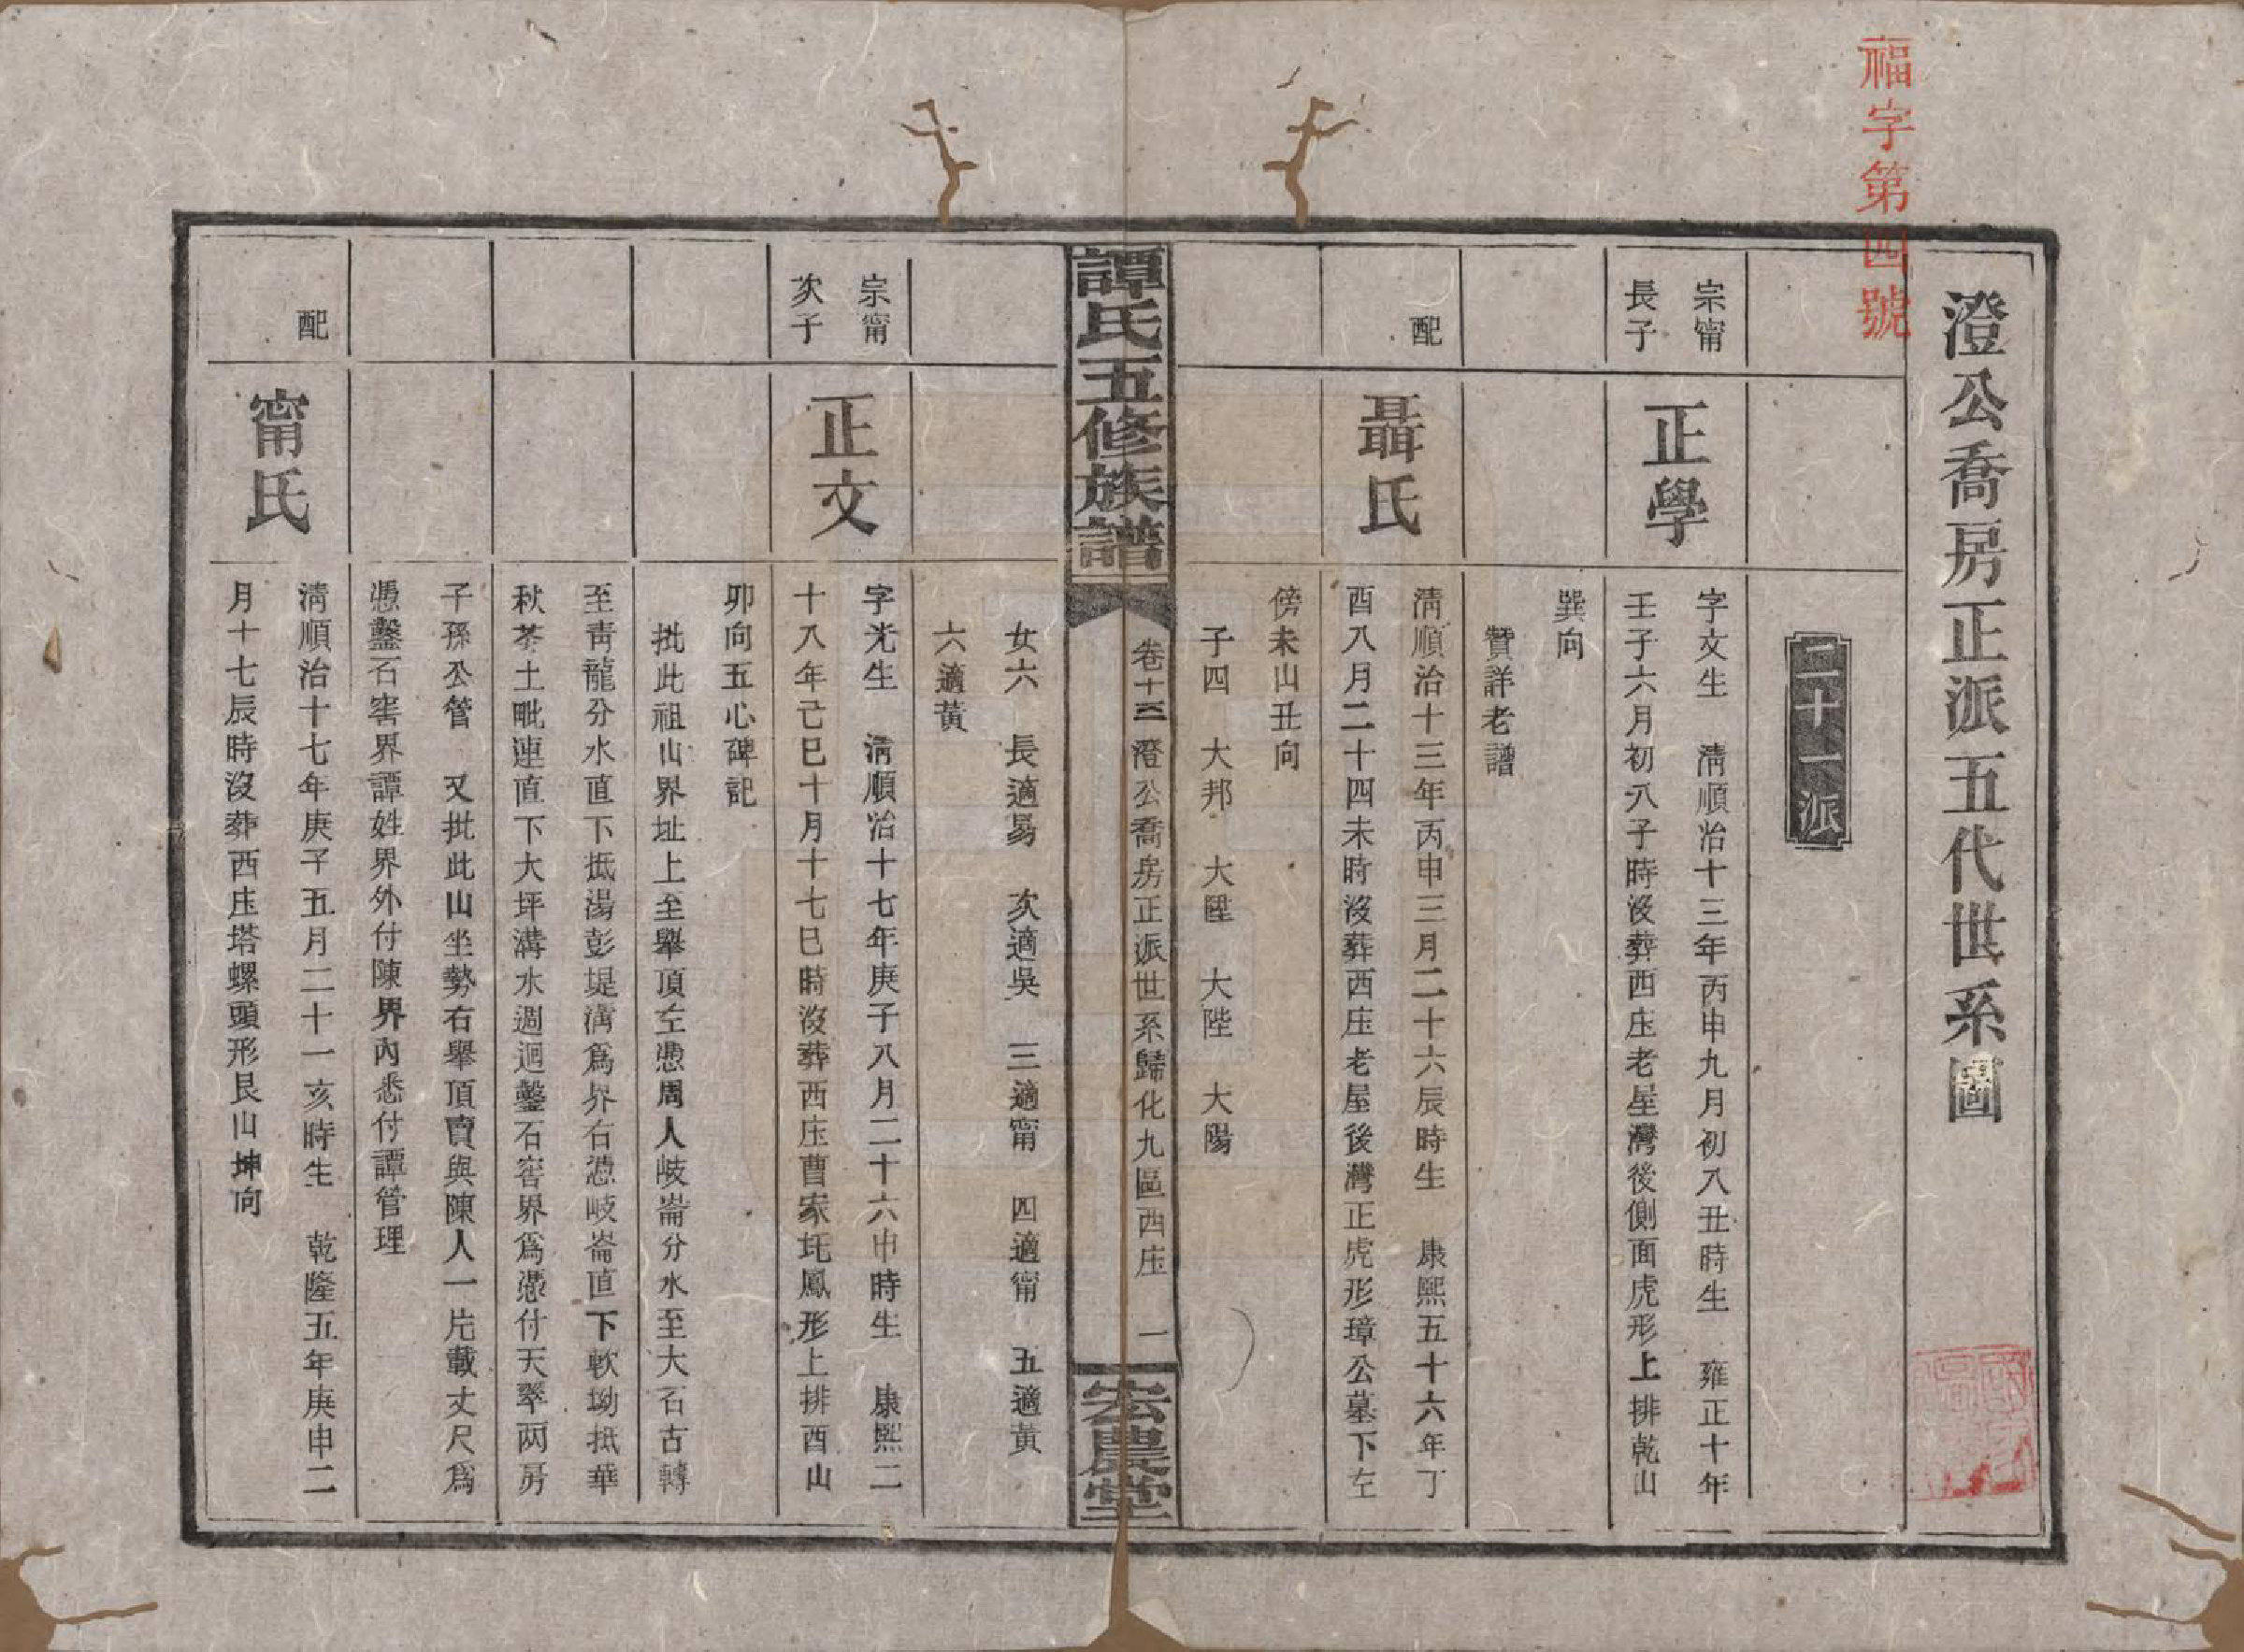 福字第四號
澄公喬房正派五代世系圖
二十一派
宗甯
長子
正學
字文生　清順治十三年丙申九月初八丑時生　雍正十年
壬子六月初八子時沒葬西庄老屋灣後側面虎形上排乾山
巽向
贊詳老譜
配
聶氏
清順治十三年丙申三月二十六辰時生　康熙五十六年丁
酉八月二十四未時沒葬西庄老屋後灣正虎形璋公墓下左
傍未山丑向
子四　大邦　大𨺓　大陛　大陽
譚氏五修族譜
卷十三 澄公喬房正派世系歸化九區西庄　一
宏農堂
女六　長適易　次適吳　三適甯　四適甯　五適黃
六適黃
宗甯
次子
正文
字光生　清順治十七年庚子八月二十六申時生　康熙二
十八年己巳十月十七巳時沒葬西庄曹家圫鳳形上排酉山
卯向五心碑記
批此祖山界址上至舉頂左憑周人岐崙分水至大石古轉
至青龍分水直下抵湯彭堤溝爲界右憑岐崙直下軟坳抵華
秋茶土毗連直下大坪溝水週迴鑿石窖界爲憑付天翠两房
子孫公管　又批此山坐勢右舉頂賣與陳人一片載丈尺爲
憑鑿石窖界譚姓界外付陳界內悉付譚管理
配
甯氏
清順治十七年庚子五月二十一亥時生　乾隆五年庚申二
月十七辰時沒葬西庄塔螺頭形艮山坤向